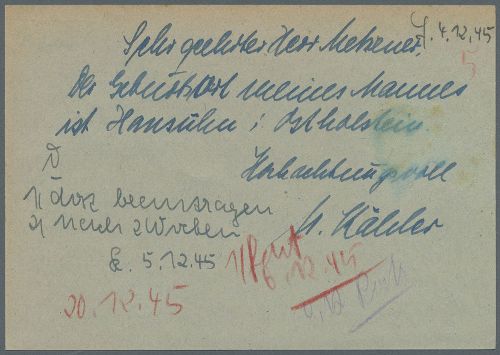 4.12.45
5
Sehr geehrter Herr Metzner.
Der Geburtsort meines Mannes
ist Hansühn i. Ostholstein.
Hochachtungsvoll
Kähler
1)
beantragen
2) nach 2 Wochen
5.12.45
1)
6.12.45
20.12.45